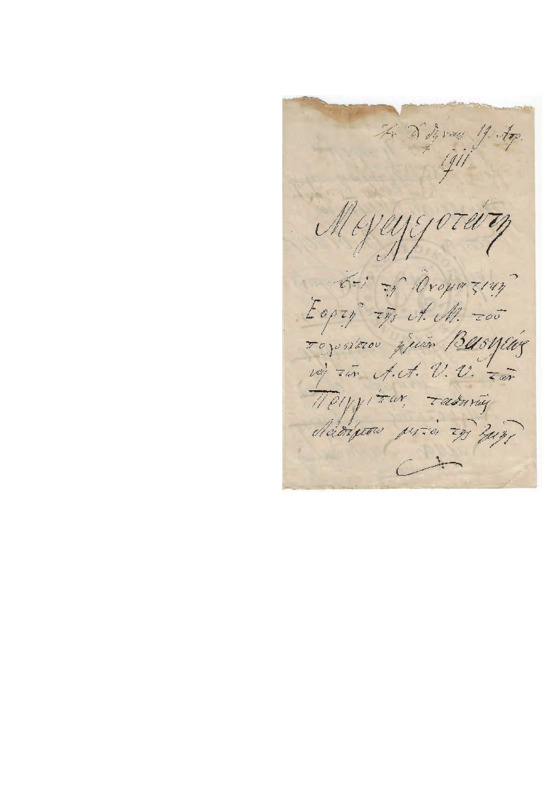 Ἐν Ἀθήναις 19 Απρ.
1911
Μεγαλειοτάτη
Ἐπὶ τῇ Ὀνομαστικῇ
Ἑορτῇ τῆς Α. Μ. τοῦ
ἡμῶν Βασιλέως
καὶ τῶν Α.Α. Υ.Υ. τῶν
Πριγγίπων, ταπεινῶς
μετὰ τῆς ἐμῆς